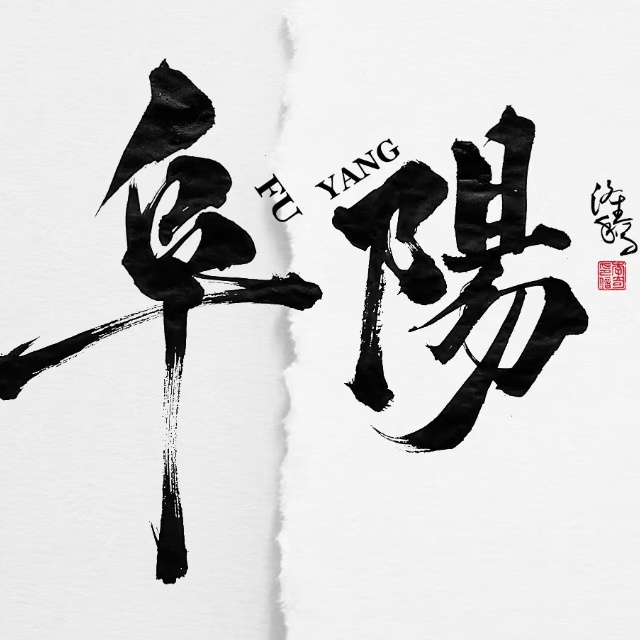 阜陽
FU YANG